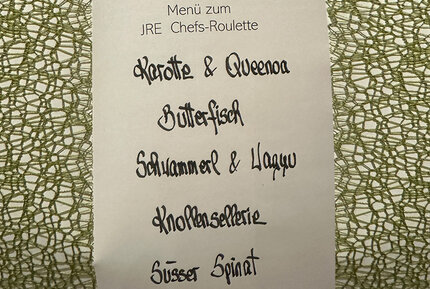 Menü zum
JRE Chefs-Roulette
Karotte & Queenoa
Butterfisch
Schwammerl & Wagyu
Knollensellerie
Süsser Spinat